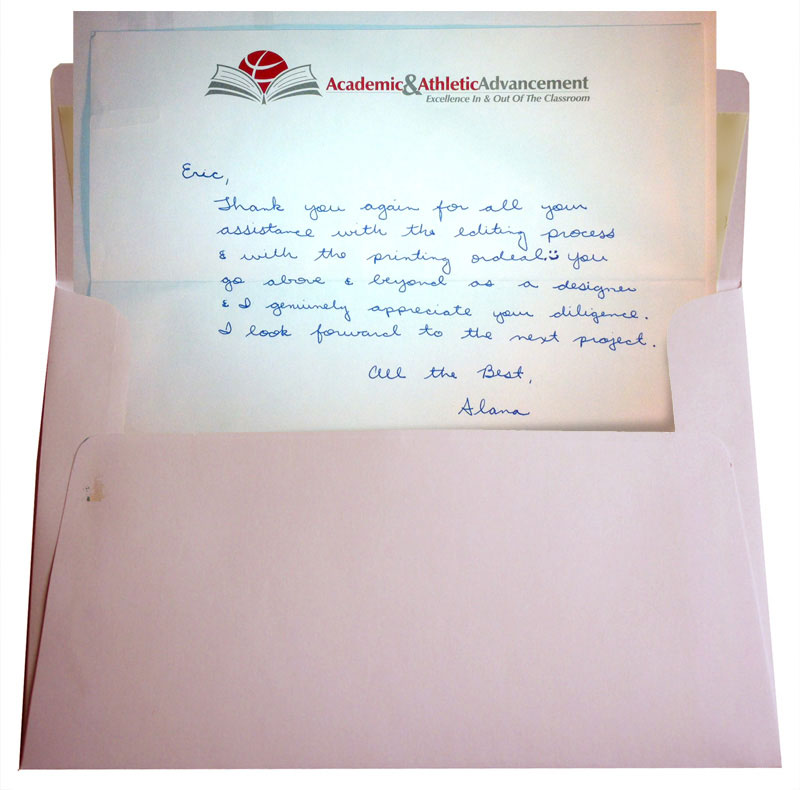 Academic&AthleticAdvancement
Excellence In & Out Of The Classroom
Eric,
Thank you again for all your
assistance with the editing process
& with the printing ordeal. :) You
go above & beyond as a designer
& I genuinely appreciate your diligence.
I look forward to the next project.
All the Best,
Alana